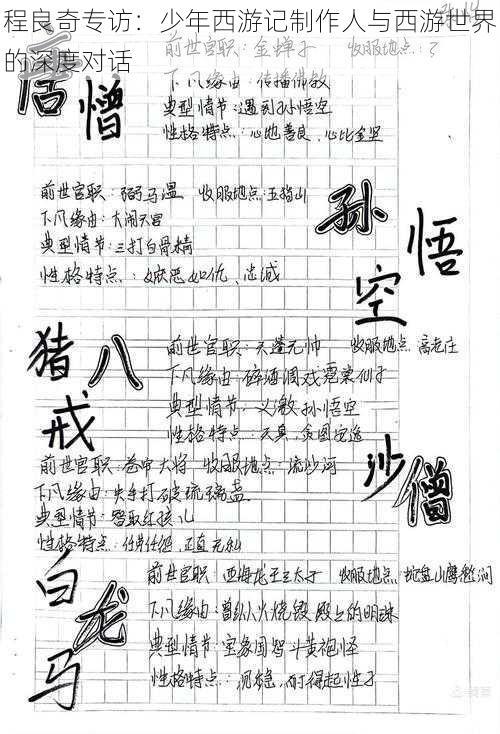 程良奇专访：少年西游记制作人与西游世界
的深度对话
唐僧
前世官职：金蝉子 收服地点：？
下凡缘由：传播佛教
典型情节：遇到孙悟空
性格特点：心地善良，心比金坚
孙悟空
前世官职：弼马温 收服地点：五指山
下凡缘由：大闹天宫
典型情节：三打白骨精
性格特点：嫉恶如仇、忠诚
猪八戒
前世官职：天蓬元帅 收服地点：高老庄
下凡缘由：醉酒调戏霓裳仙子
典型情节：义激孙悟空
性格特点：天真，贪图安逸
沙僧
前世官职：卷帘大将 收服地点：流沙河
下凡缘由：失手打破琉璃盏
典型情节：智取红孩儿
性格特点：任劳任怨，正直无私
白龙马
前世官职：西海龙王三太子 收服地点：蛇盘山鹰愁涧
下凡缘由：曾纵火烧毁殿上的明珠
典型情节：宝象国智斗黄袍怪
性格特点：沉稳，耐得起性子